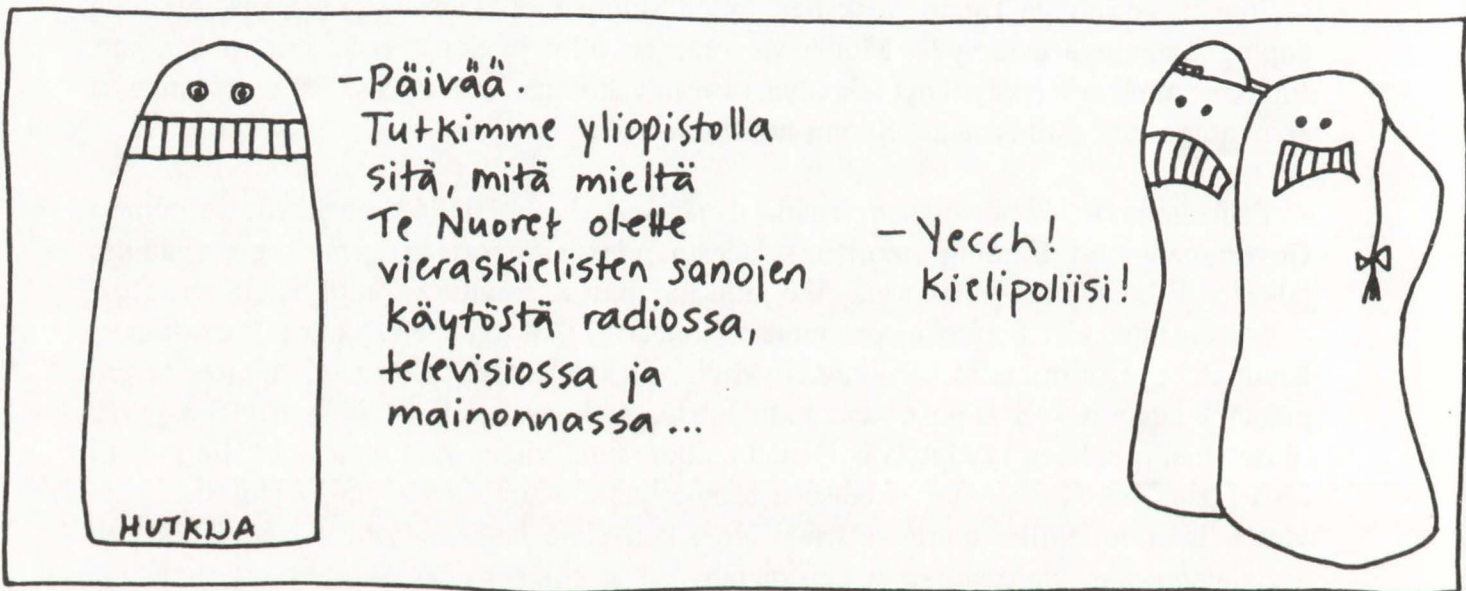 -Päivää.
Tutkimme yliopistolla
sitä, mitä mieltä
Te Nuoret olette
vieraskielisten sanojen
käytöstä radiossa,
televisiossa ja
mainonnassa...
- Yecch!
Kielipoliisi!
HUTKIJA